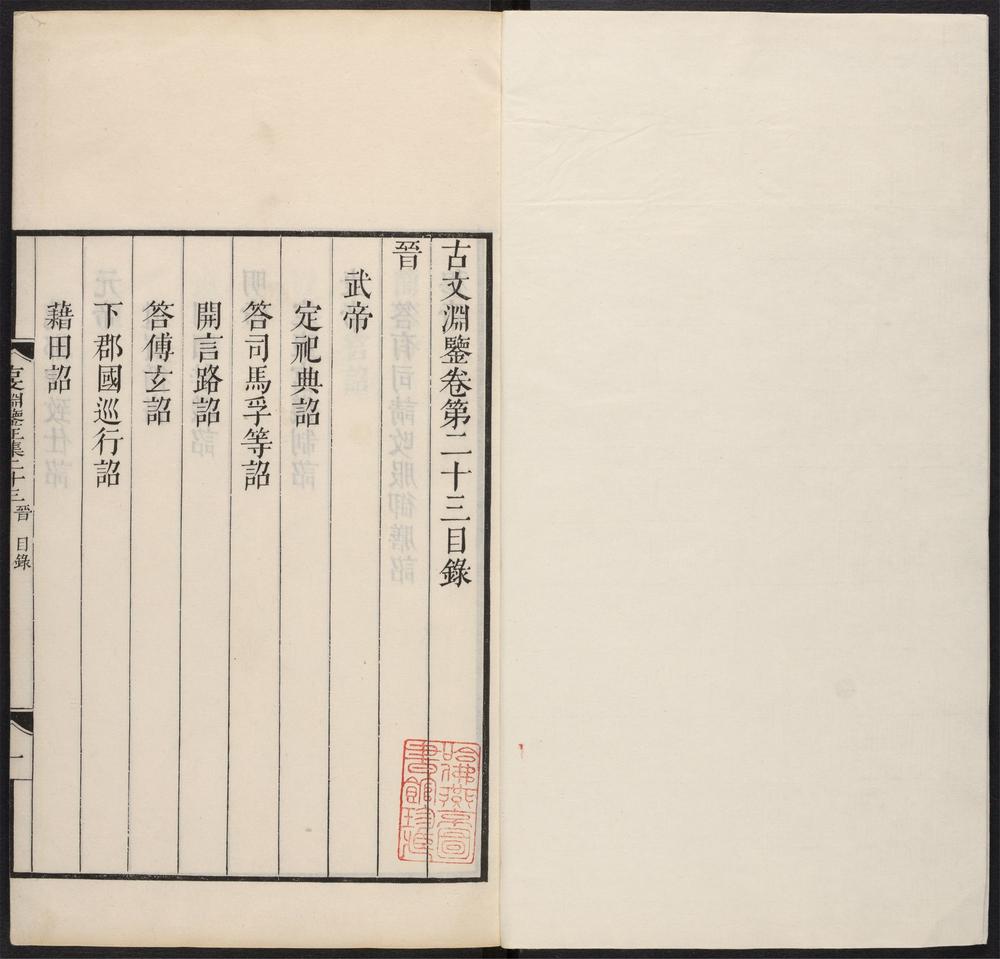 古文淵鑒卷第二十三目錄
晉
武帝
定祀典詔
答司馬孚等詔
開言路詔
答傅玄詔
下郡國巡行詔
藉田詔
古文淵鑒正集二十三 晉 目錄
一
哈佛燕京圖
書館珍藏